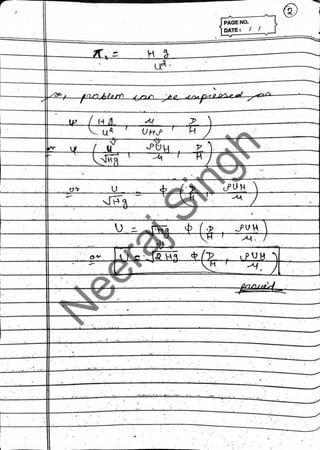 ②
PAGE NO.
DATE: / /
π₁ = H g / u²
so, problem can be expressed as
ψ ( H g / u² , μ / UHρ , D / H )
or ψ ( u / √Hg , ρUH / μ , D / H )
or U / √Hg = φ ( D / H , ρUH / μ )
U = √Hg φ ( D / H , ρUH / μ )
or U = √2Hg φ ( D / H , ρUH / μ )
proved
Neeraj Singh